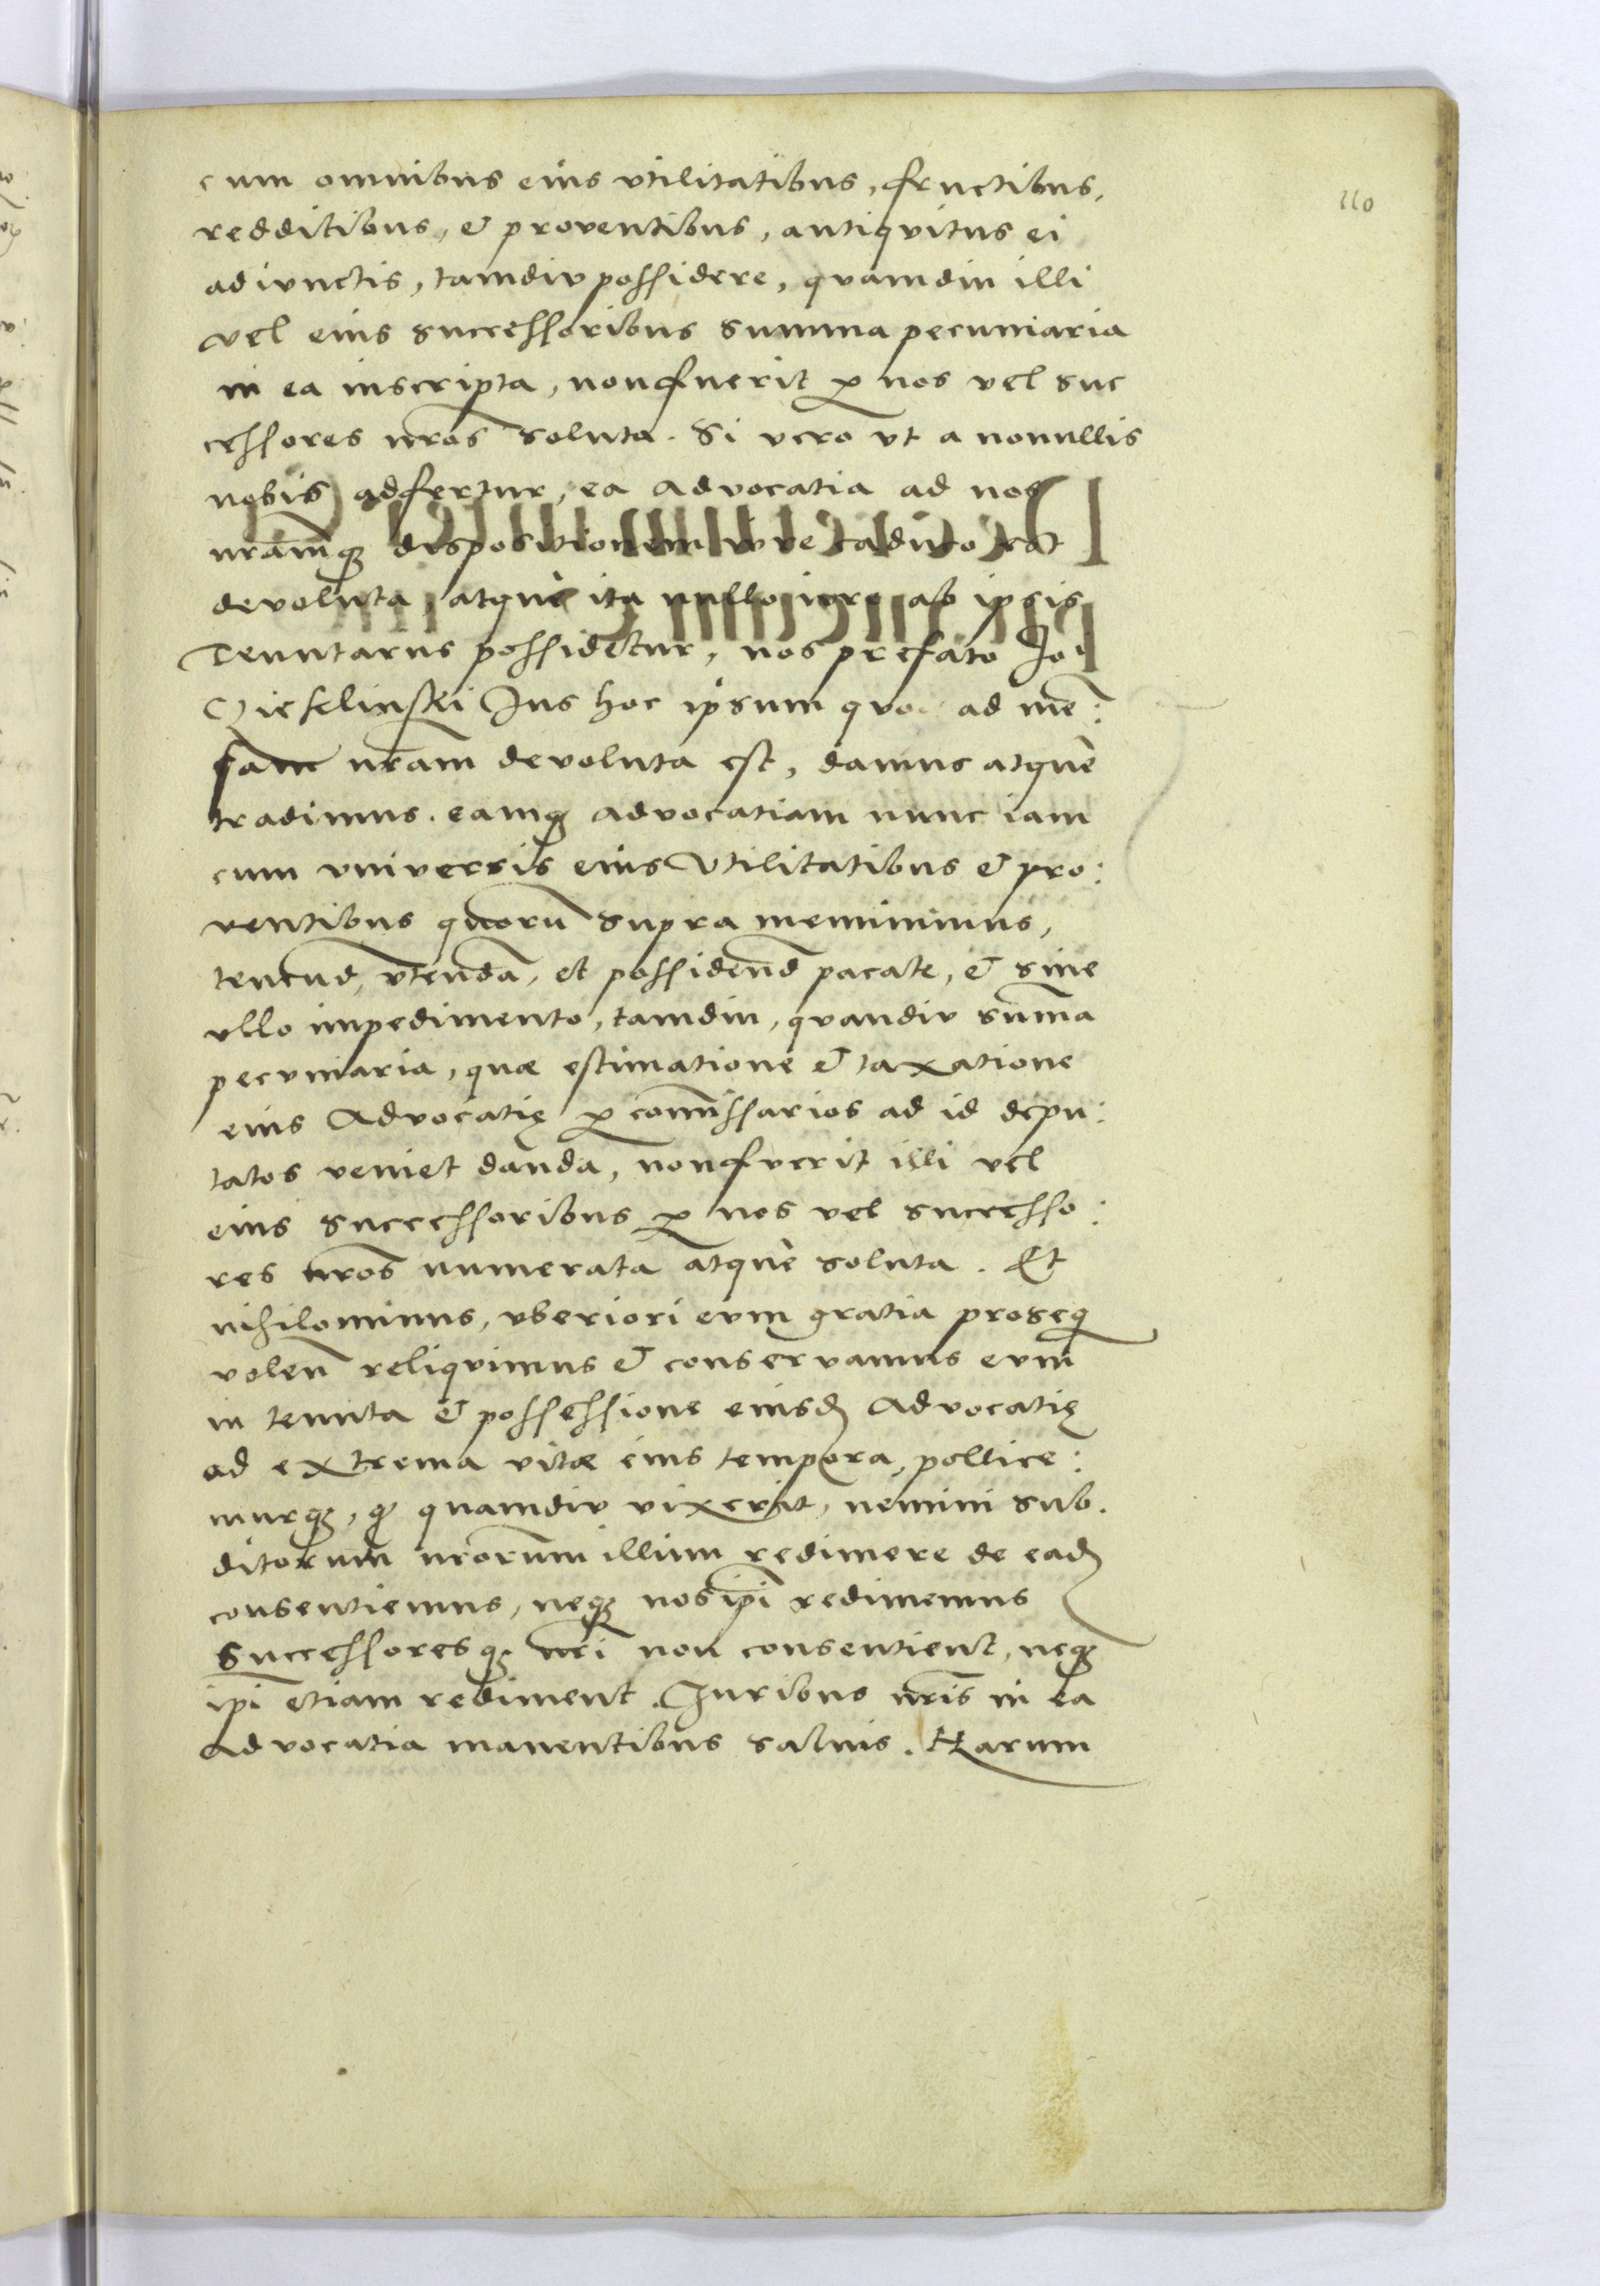 110
cum omnibus eius vtilitatibus, fructibus,
redditibus, & proventibus, antiqvitus ei
adivnctis, tamdiv possidere, qvamdiu illi
vel eius successoribus summa pecuniaria
in ea inscripta, non fuerit p nos vel suc
cessores nr̃os soluta. Si vero vt a nonullis
nobis adfertur, ea advocatia ad nos
nr̃amq; dispositionem iure caduco est
devoluta, atque ita nullo iure ab ipsis
Tenutarus possidetur, nos prefato Jo:
Kieſlinſki Jus hoc ipsum quo ad me:
sam nr̃am devoluta est, damus atque
tradimus. eamq; advocatiam nunc iam
cum vniversis eius Vtilitatibus & pro:
ventibus quoru̅ supra meminimus,
tenend, vtenda, et possidend pacate, & sine
vllo impedimento, tamdiu, qvandiv sum̃a
pecvniaria, quæ estimatione & taxatione
eius Advocatię p com̃issarios ad id depu:
tatos veniet danda, non fverit illi vel
eius successoribus p nos vel successo:
res nr̃os numerata atque soluta. Et
nihilominus, vberiori evm gratia proseq
volen̅ reliqvimus & conservamus evm
in tenuta & possessione eiusd Advocatię
ad extrema vitæ eius tempora, pollice:
murq;, q quamdiv vixerit, nemini sub.
ditorum nr̃orum illum redimere de ead
consentiemus, neq; nos ip̃i redimemus
Successoresq; nr̃i non consentient, neq;
ip̃i etiam rediment. Juribus nr̃is in ea
Advocatia manentibus salvis. Harum